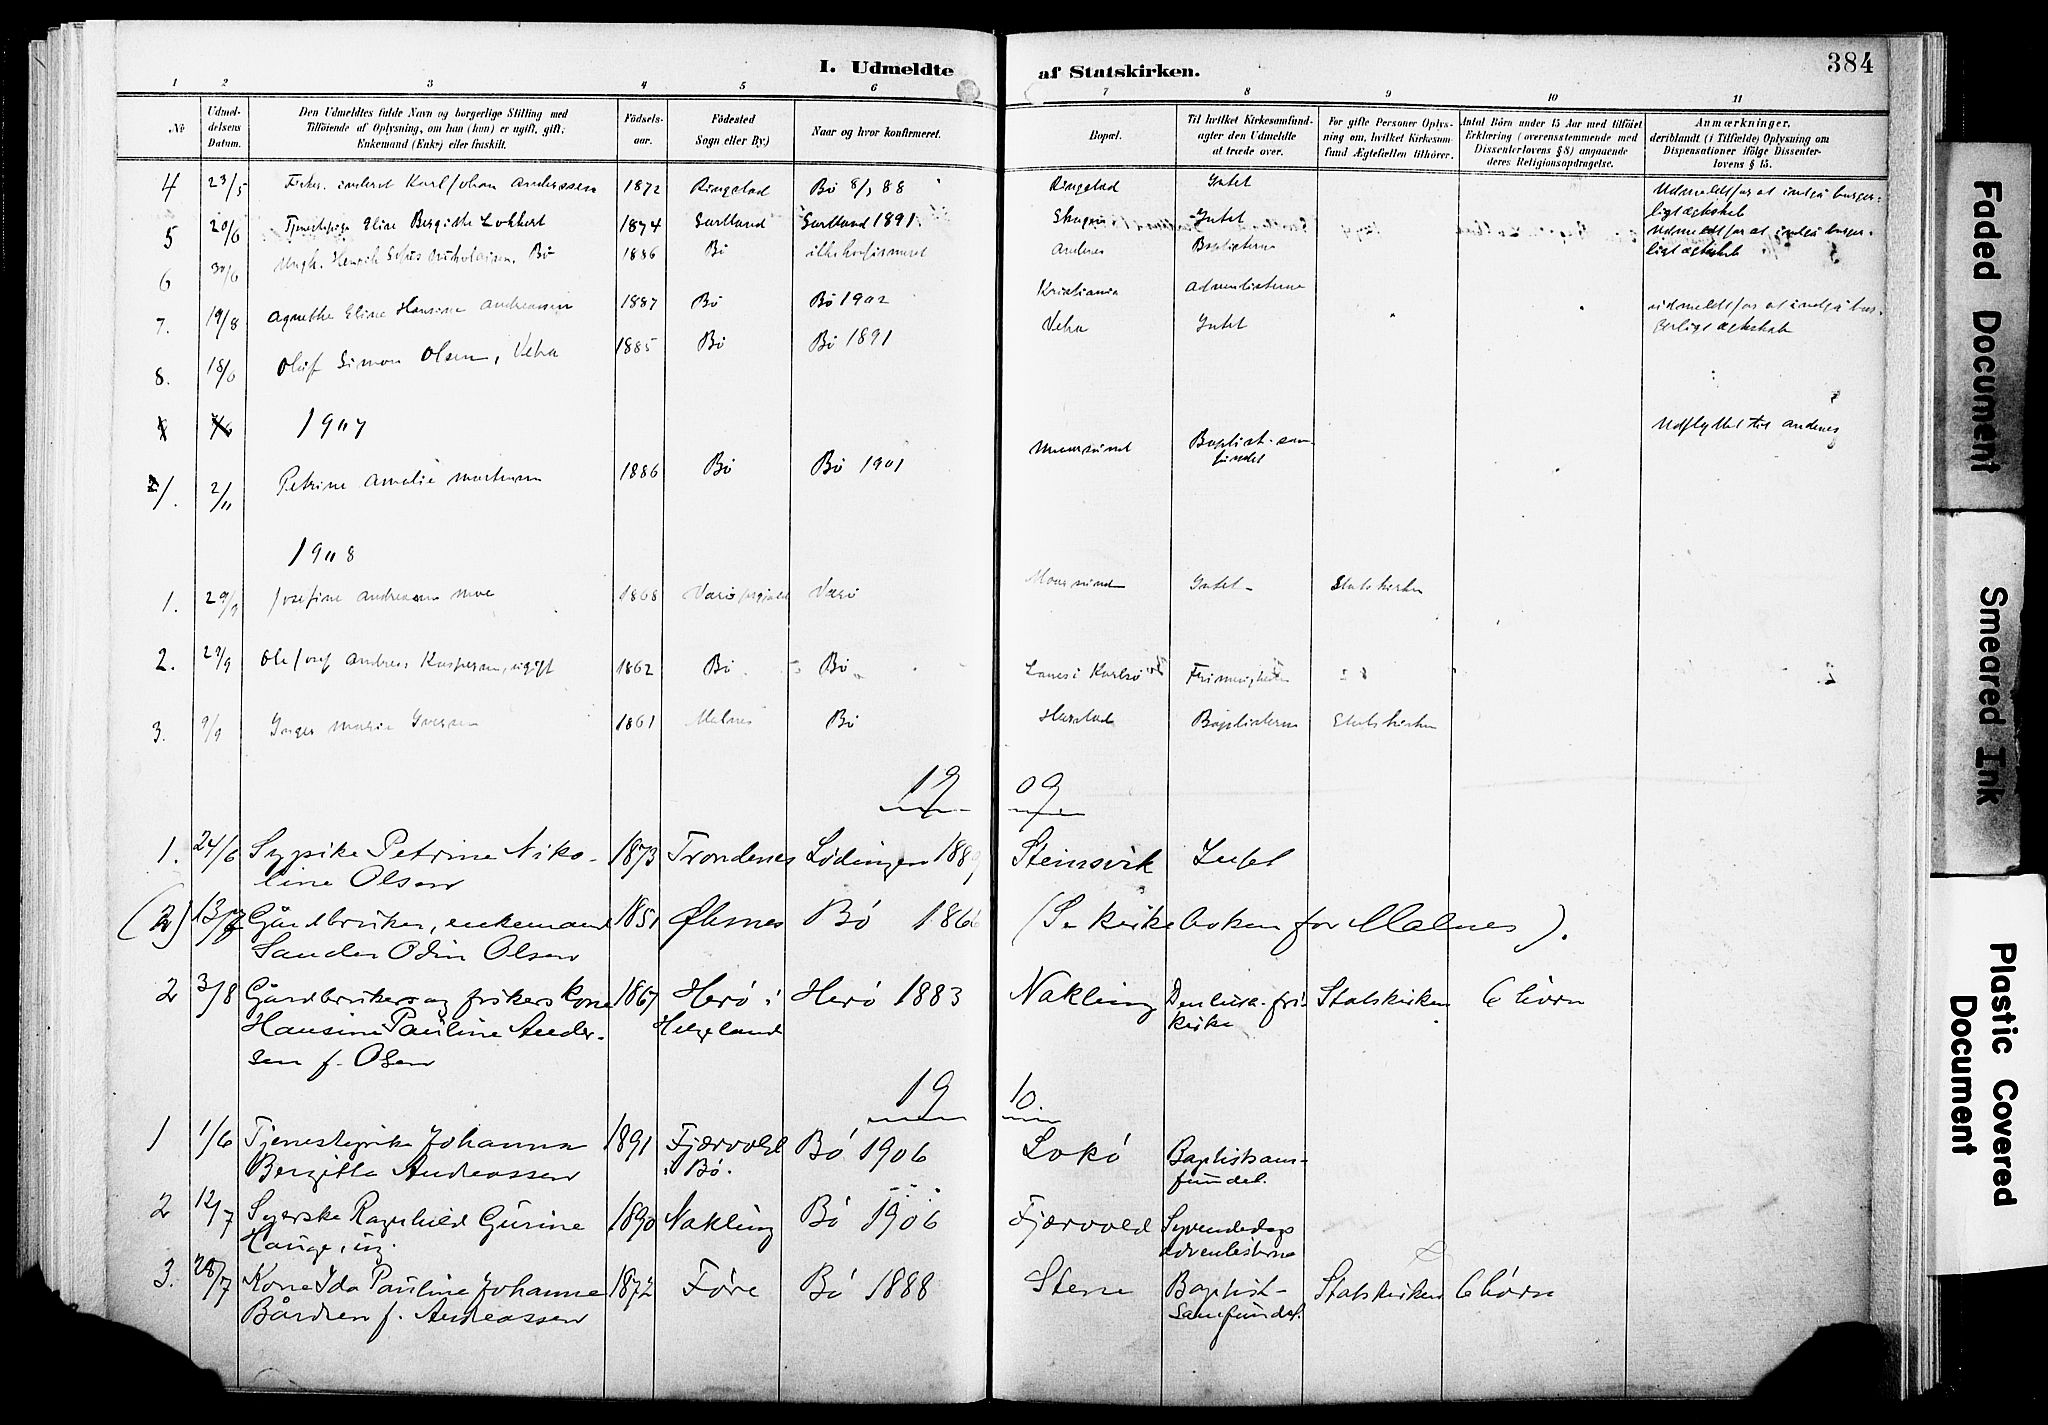 I. Udmeldte af Statskirken.
384
1 2 3 4 5 6 7 8 9 10 11
No
Udmeldelsens Datum.
Den Udmeldtes fulde Navn og borgerlige Stilling med
Tilføiende af Oplysning, om han (hun) er ugift, gift,
Enkemand (Enke) eller fraskilt.
Fødselsaar.
Fødested
Sogn eller By.)
Naar og hvor konfirmeret.
Bopæl.
Til hvilket Kirkesamfund
agter den Udmeldte
at træde over.
For gifte Personer Oplys-
ning om, hvilket Kirkesam-
fund Ægtefællen tilhører.
Antal Børn under 15 Aar med tilføiet
Erklæring (overensstemmende med
Dissenterlovens § 8) angaaende
deres Religionsopdragelse.
Anmærkninger,
deriblandt (i Tilfælde) Oplysning om
Dispensationer ifølge Dissenter-
lovens § 15.
4 23/5 Karl Johan Anderssen 1872 Ringstad Bø 88 Ringstad Intet Udmeldt for at indgå borger-
ligt ægteskab
5 20/6 Tjenestepige Elise Bergithe Lokkert 1874 Sortland Sortland 1891 Skagen Intet Udmeldt for at indgå borger-
ligt ægteskab
6 30/6 Ungk. Henrik Sofus Nikolaisen, Bø 1886 Bø ikke konfirmeret Andenes Baptisterne
7. 19/8 Agnethe Eline Hansine Andreassen 1887 Bø Bø 1902 Kristiania Adventisterne
8. 18/6 Oluf Simon Olsen, Vetra 1885 Bø Bø 1891 Vetra Intet udmeldt for at indgå bor-
gerligt ægteskab
1907
1. 2/11 Petrine Amalie Martinsen 1886 Bø Bø 1901 Baptist-sam
fundet Udflyttet til Andenes
1908
1. 29/9 Josefine Andreassen Moe 1868 Værø Intet Statskirken
2. 29/9 Ole Josef Andreas Kaspersen, ugift 1862 Bø Bø Lanes i Karlsø Frimenigheden
3. 9/9 Inger Maria Iversen 1861 Malnes Bø Harstad Baptisterne Statskirken
1909
1. 24/6 Sypike Petrine Niko-
line Olsen 1873 Trondenes Lødingen 1889 Steinsvik Intet
(2) 13/7 Gårdbruker, enkemand
Sander Odin Olsen 1851 Øksnes Bø 1866 (Se kirkeboken for Malnes).
2 3/8 Gårdbrukers og fiskers kone
Hansine Pauline Ander-
sen f. Olsen 1867 Herø i
Helgeland Herø 1883 Nakling Den luth. fri-
kirke Statskirken 6 børn
1910
1 1/6 Tjenestepike Johanna
Bergitte Andreassen 1891 Fjærvoll
i Bø. Bø 1906 Lokø Baptistsam-
fundet.
2 12/7 Syerske Ragnhild Gurine
Hauge, ug. 1890 Nakling Bø 1906 Fjærvold Syvendedags
adventisterne
3. 28/7 Kone Ida Pauline Johanne
Bårdsen f. Andreassen 1872 Føre Bø 1888 Stene Baptist-
samfundet. Statskirken 6 børn
Faded Document
Smeared Ink
Plastic Covered
Document